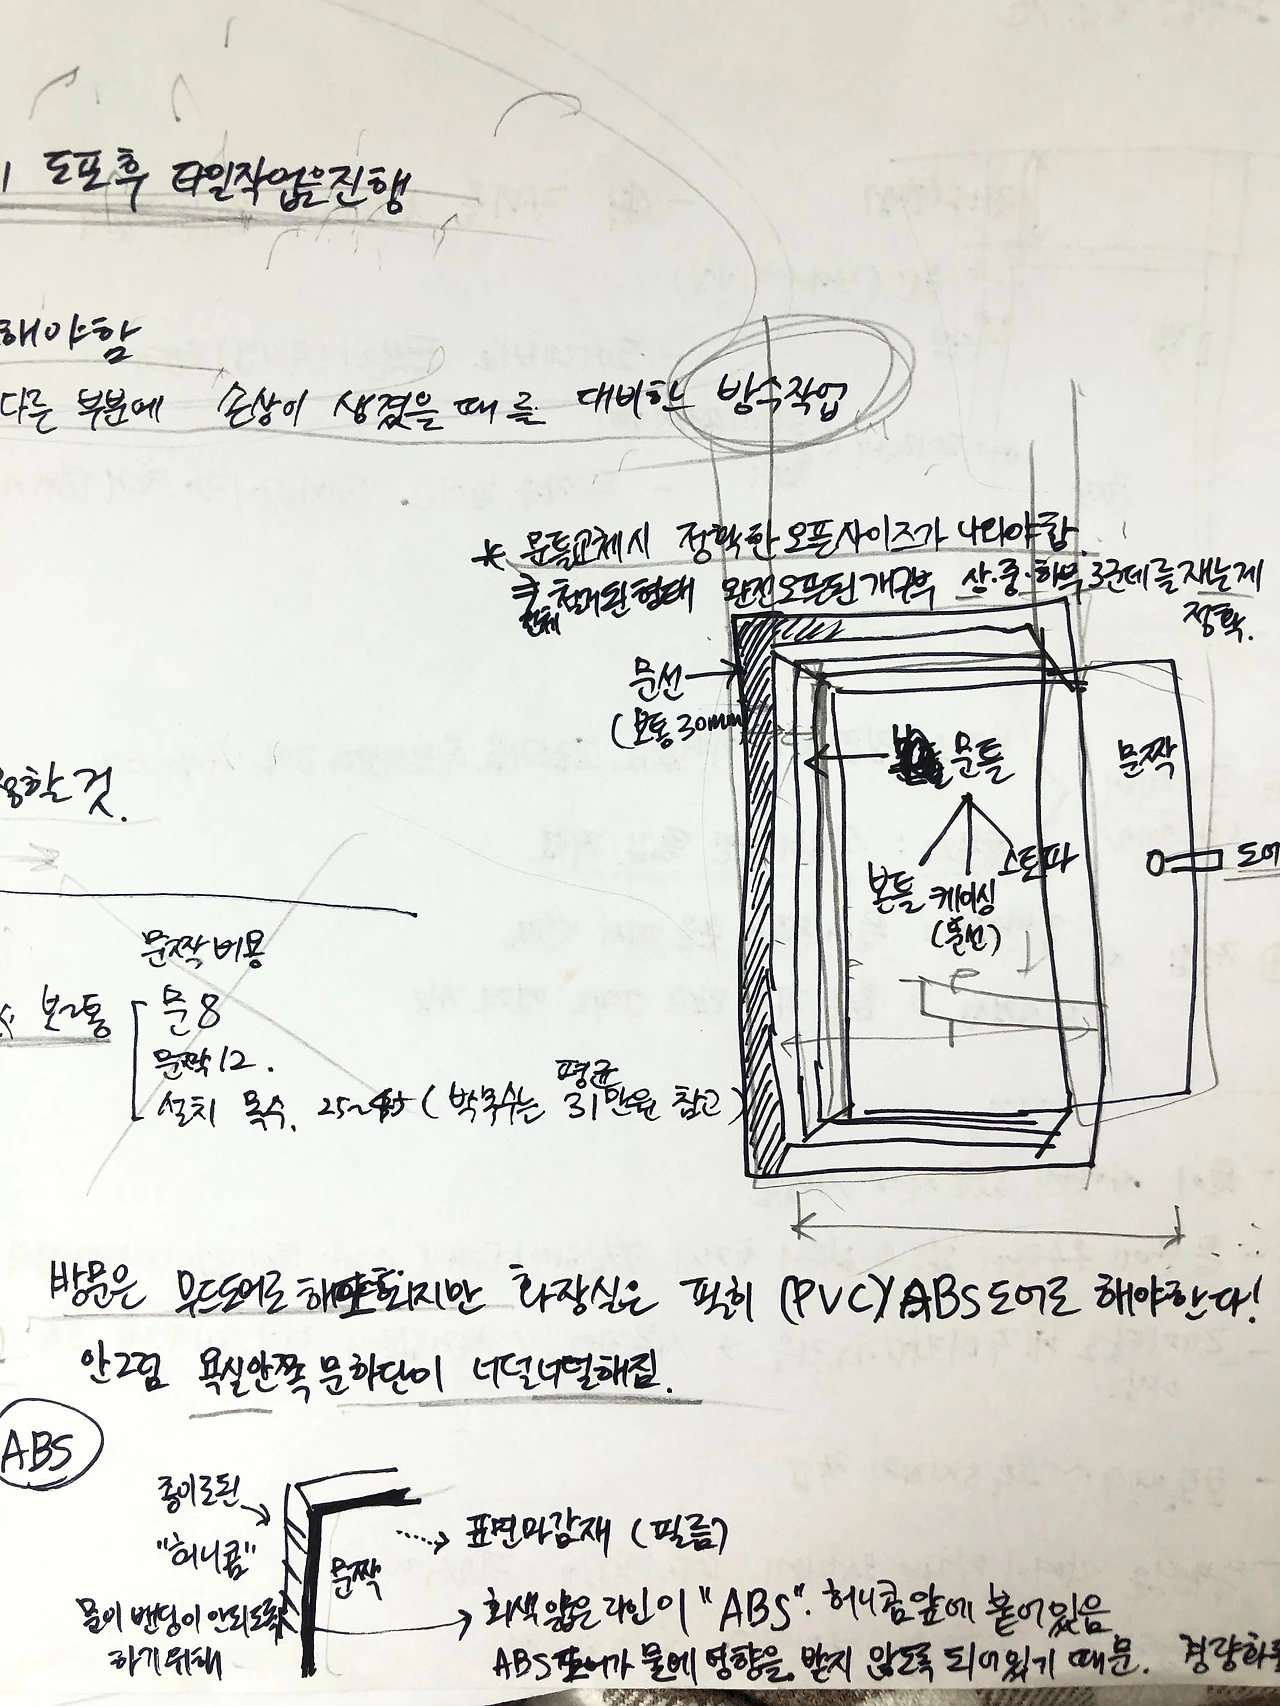 도포후 타일작업을진행
해야함
다른 부분에 손상이 생겼을때를 대비한 방수작업
* 문틀교체시 정확한 오픈사이즈가 나와야함.
전체 철거된형태 완전오픈된개구부 상·중·하부 3군데를재는게
정확.
문선
(보통 30mm)
문틀
문짝
본틀 케이싱 스토파
(문선)
도어
용할 것.
문짝비용
보통 문 8
문짝 12.
설치 목수. 25~ (박목수는 평균 31만원 참고)
방문은 우드도어로 해도되지만 화장실은 필히 (PVC) ABS도어로 해야한다!
안그럼 욕실안쪽 문하단이 너덜너덜해짐.
ABS
종이로된
"허니콤"
문이 밴딩이 안되도록
하기위해
문짝
표면마감재 (필름)
회색얇은라인이 "ABS". 허니콤앞에 붙어있음
ABS도어가 물에 영향을 받지 않도록 되어있기 때문. 경량화